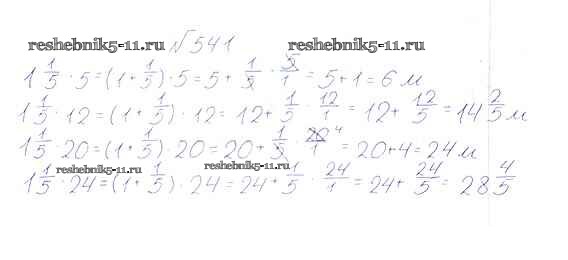 reshebnik5-11.ru №541 reshebnik5-11.ru
1 1/5 · 5 = (1 + 1/5) · 5 = 5 + 1/5 · 5/1 = 5 + 1 = 6 м
1 1/5 · 12 = (1 + 1/5) · 12 = 12 + 1/5 · 12/1 = 12 + 12/5 = 14 2/5 м
1 1/5 · 20 = (1 + 1/5) · 20 = 20 + 1/5 · 20 4/1 = 20 + 4 = 24 м
reshebnik5-11.ru reshebnik5-11.ru
1 1/5 · 24 = (1 + 1/5) · 24 = 24 + 1/5 · 24/1 = 24 + 24/5 = 28 4/5